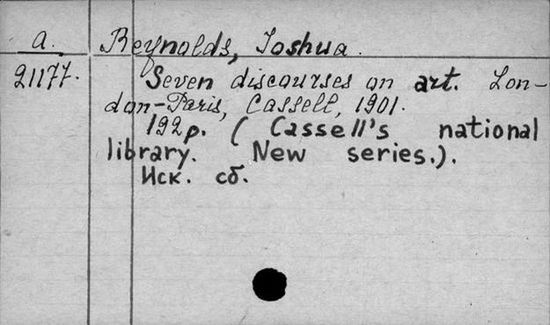 a. Reynolds, Joshua.
21177. Seven discourses on art. Lon-
don-Paris, Cassell, 1901.
192p. (Cassell's national
library. New series.).
Иск. сб.